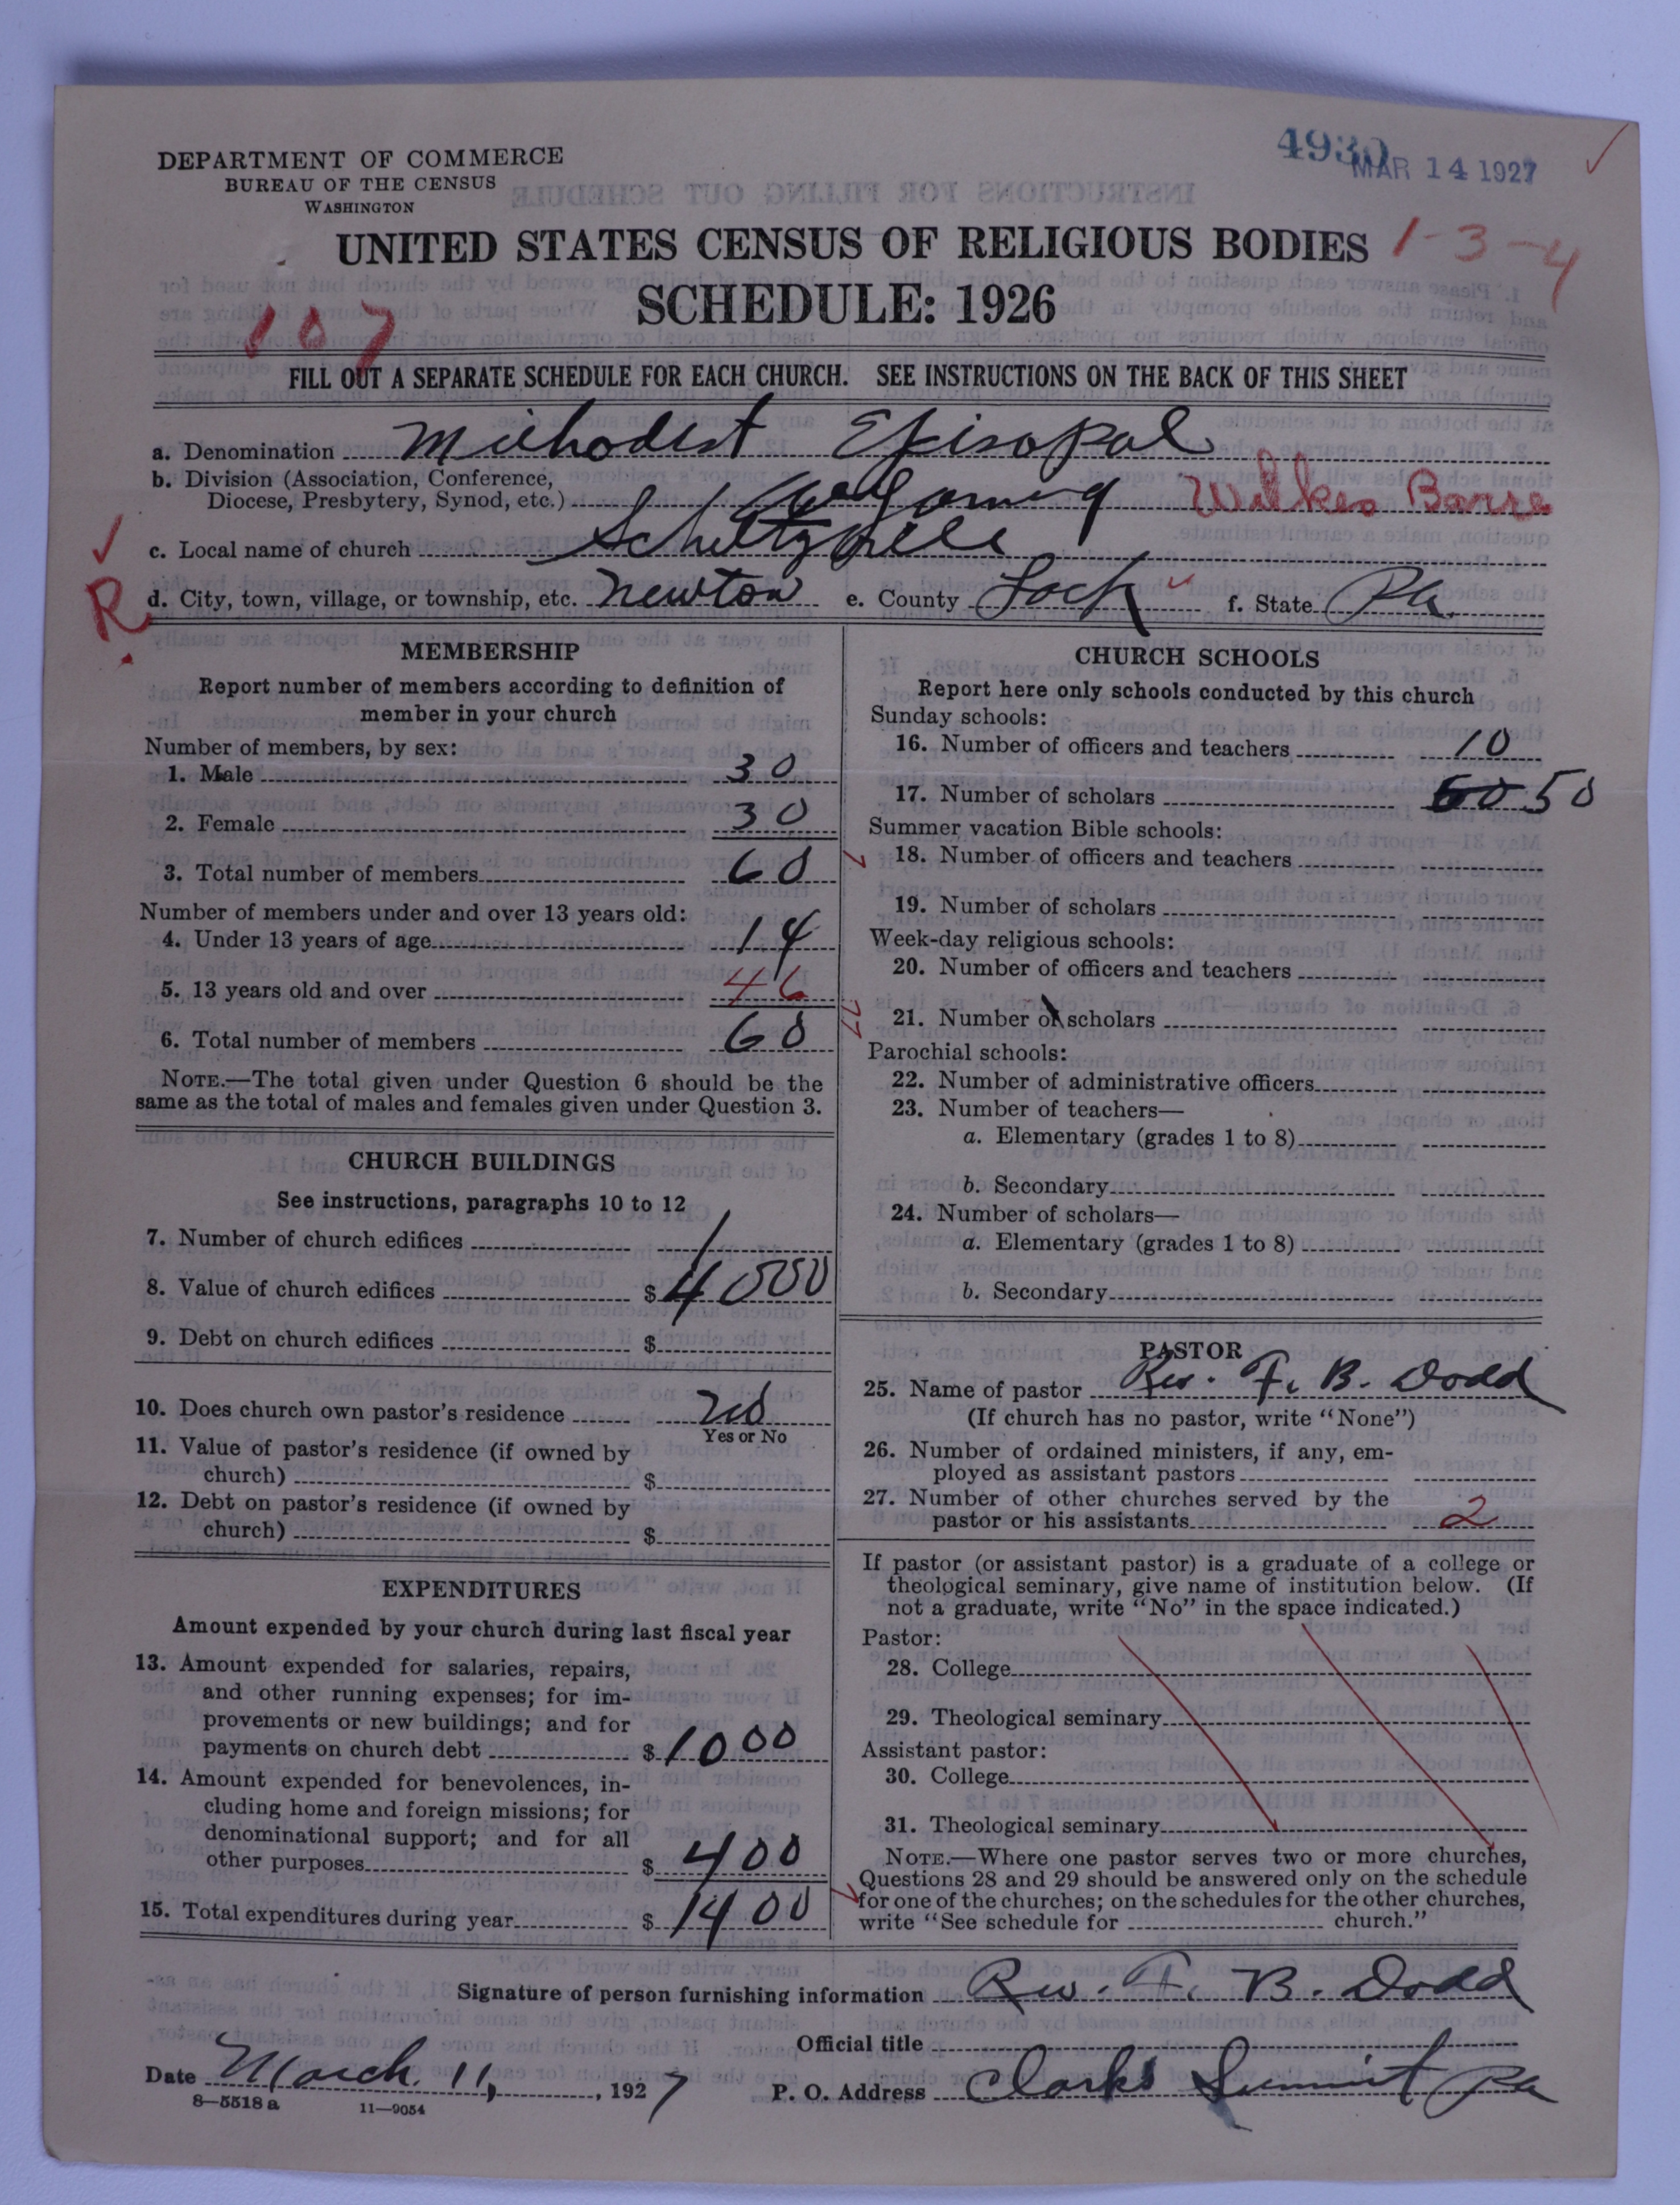 4930
MAR 14 1927
DEPARTMENT OF COMMERCE
BUREAU OF THE CENSUS
WASHINGTON
UNITED STATES CENSUS OF RELIGIOUS BODIES 1-3-4
SCHEDULE: 1926
107
FILL OUT A SEPARATE SCHEDULE FOR EACH CHURCH. SEE INSTRUCTIONS ON THE BACK OF THIS SHEET
a. Denomination Methodist Episopal
b. Division (Association, Conference,
Diocese, Presbytery, Synod, etc.) Wyoming Wilkes Barre
c. Local name of church
R. d. City, town, village, or township, etc. Newton e. County Lack f. State Pa.
MEMBERSHIP
Report number of members according to definition of
member in your church
Number of members, by sex:
1. Male 30
2. Female 30
3. Total number of members 60
Number of members under and over 13 years old:
4. Under 13 years of age 14
5. 13 years old and over 46
6. Total number of members 60
NOTE.—The total given under Question 6 should be the
same as the total of males and females given under Question 3.
CHURCH BUILDINGS
See instructions, paragraphs 10 to 12
7. Number of church edifices 1
8. Value of church edifices $4000
9. Debt on church edifices $
10. Does church own pastor's residence no
Yes or No
11. Value of pastor's residence (if owned by
church) $
12. Debt on pastor's residence (if owned by
church) $
EXPENDITURES
Amount expended by your church during last fiscal year
13. Amount expended for salaries, repairs,
and other running expenses; for im-
provements or new buildings; and for
payments on church debt $1000
14. Amount expended for benevolences, in-
cluding home and foreign missions; for
denominational support; and for all
other purposes $400
15. Total expenditures during year $1400
CHURCH SCHOOLS
Report here only schools conducted by this church
Sunday schools:
16. Number of officers and teachers 10
17. Number of scholars 60 50
Summer vacation Bible schools:
18. Number of officers and teachers
19. Number of scholars
Week-day religious schools:
20. Number of officers and teachers
21. Number of scholars
Parochial schools:
22. Number of administrative officers
23. Number of teachers—
a. Elementary (grades 1 to 8)
b. Secondary
24. Number of scholars—
a. Elementary (grades 1 to 8)
b. Secondary
PASTOR
25. Name of pastor Rev. F. B. Dodd
(If church has no pastor, write "None")
26. Number of ordained ministers, if any, em-
ployed as assistant pastors
27. Number of other churches served by the
pastor or his assistants 2
If pastor (or assistant pastor) is a graduate of a college or
theological seminary, give name of institution below. (If
not a graduate, write "No" in the space indicated.)
Pastor:
28. College
29. Theological seminary
Assistant pastor:
30. College
31. Theological seminary
NOTE.—Where one pastor serves two or more churches,
Questions 28 and 29 should be answered only on the schedule
for one of the churches; on the schedules for the other churches,
write "See schedule for church."
Signature of person furnishing information Rev. F. B. Dodd
Official title
Date March 11, 1927
P. O. Address Clarks Summit Pa
8-5518 a 11-9054